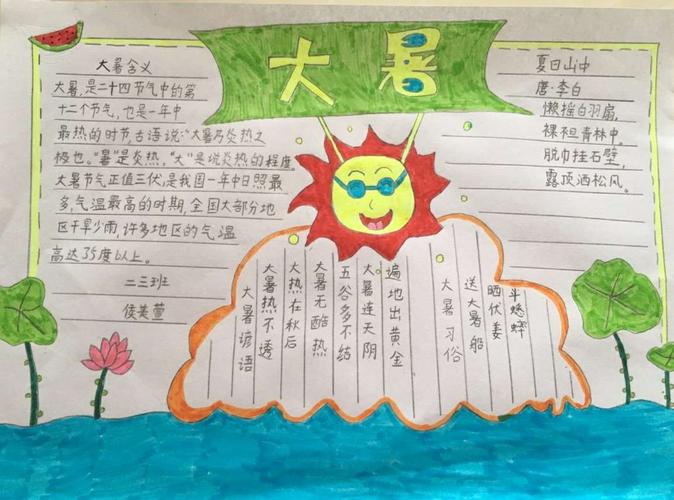 大暑
大暑含义
大暑,是二十四节气中的第
十二个节气,也是一年中
最热的时节,古语说:"大暑乃炎热之
极也。"暑"是炎热,"大"是说炎热的程度。
大暑节气正值三伏,是我国一年中日照最
多,气温最高的时期,全国大部分地
区干旱少雨,许多地区的气温
高达35度以上。
二三班
侯美萱
夏日山中
唐·李白
懒摇白羽扇,
裸袒青林中。
脱巾挂石壁,
露顶洒松风。
大暑谚语
大暑热不透
大热在秋后
大暑无酷热
五谷多不结
大暑连天阴
遍地出黄金
大暑习俗
送大暑船
晒伏姜
斗蟋蟀